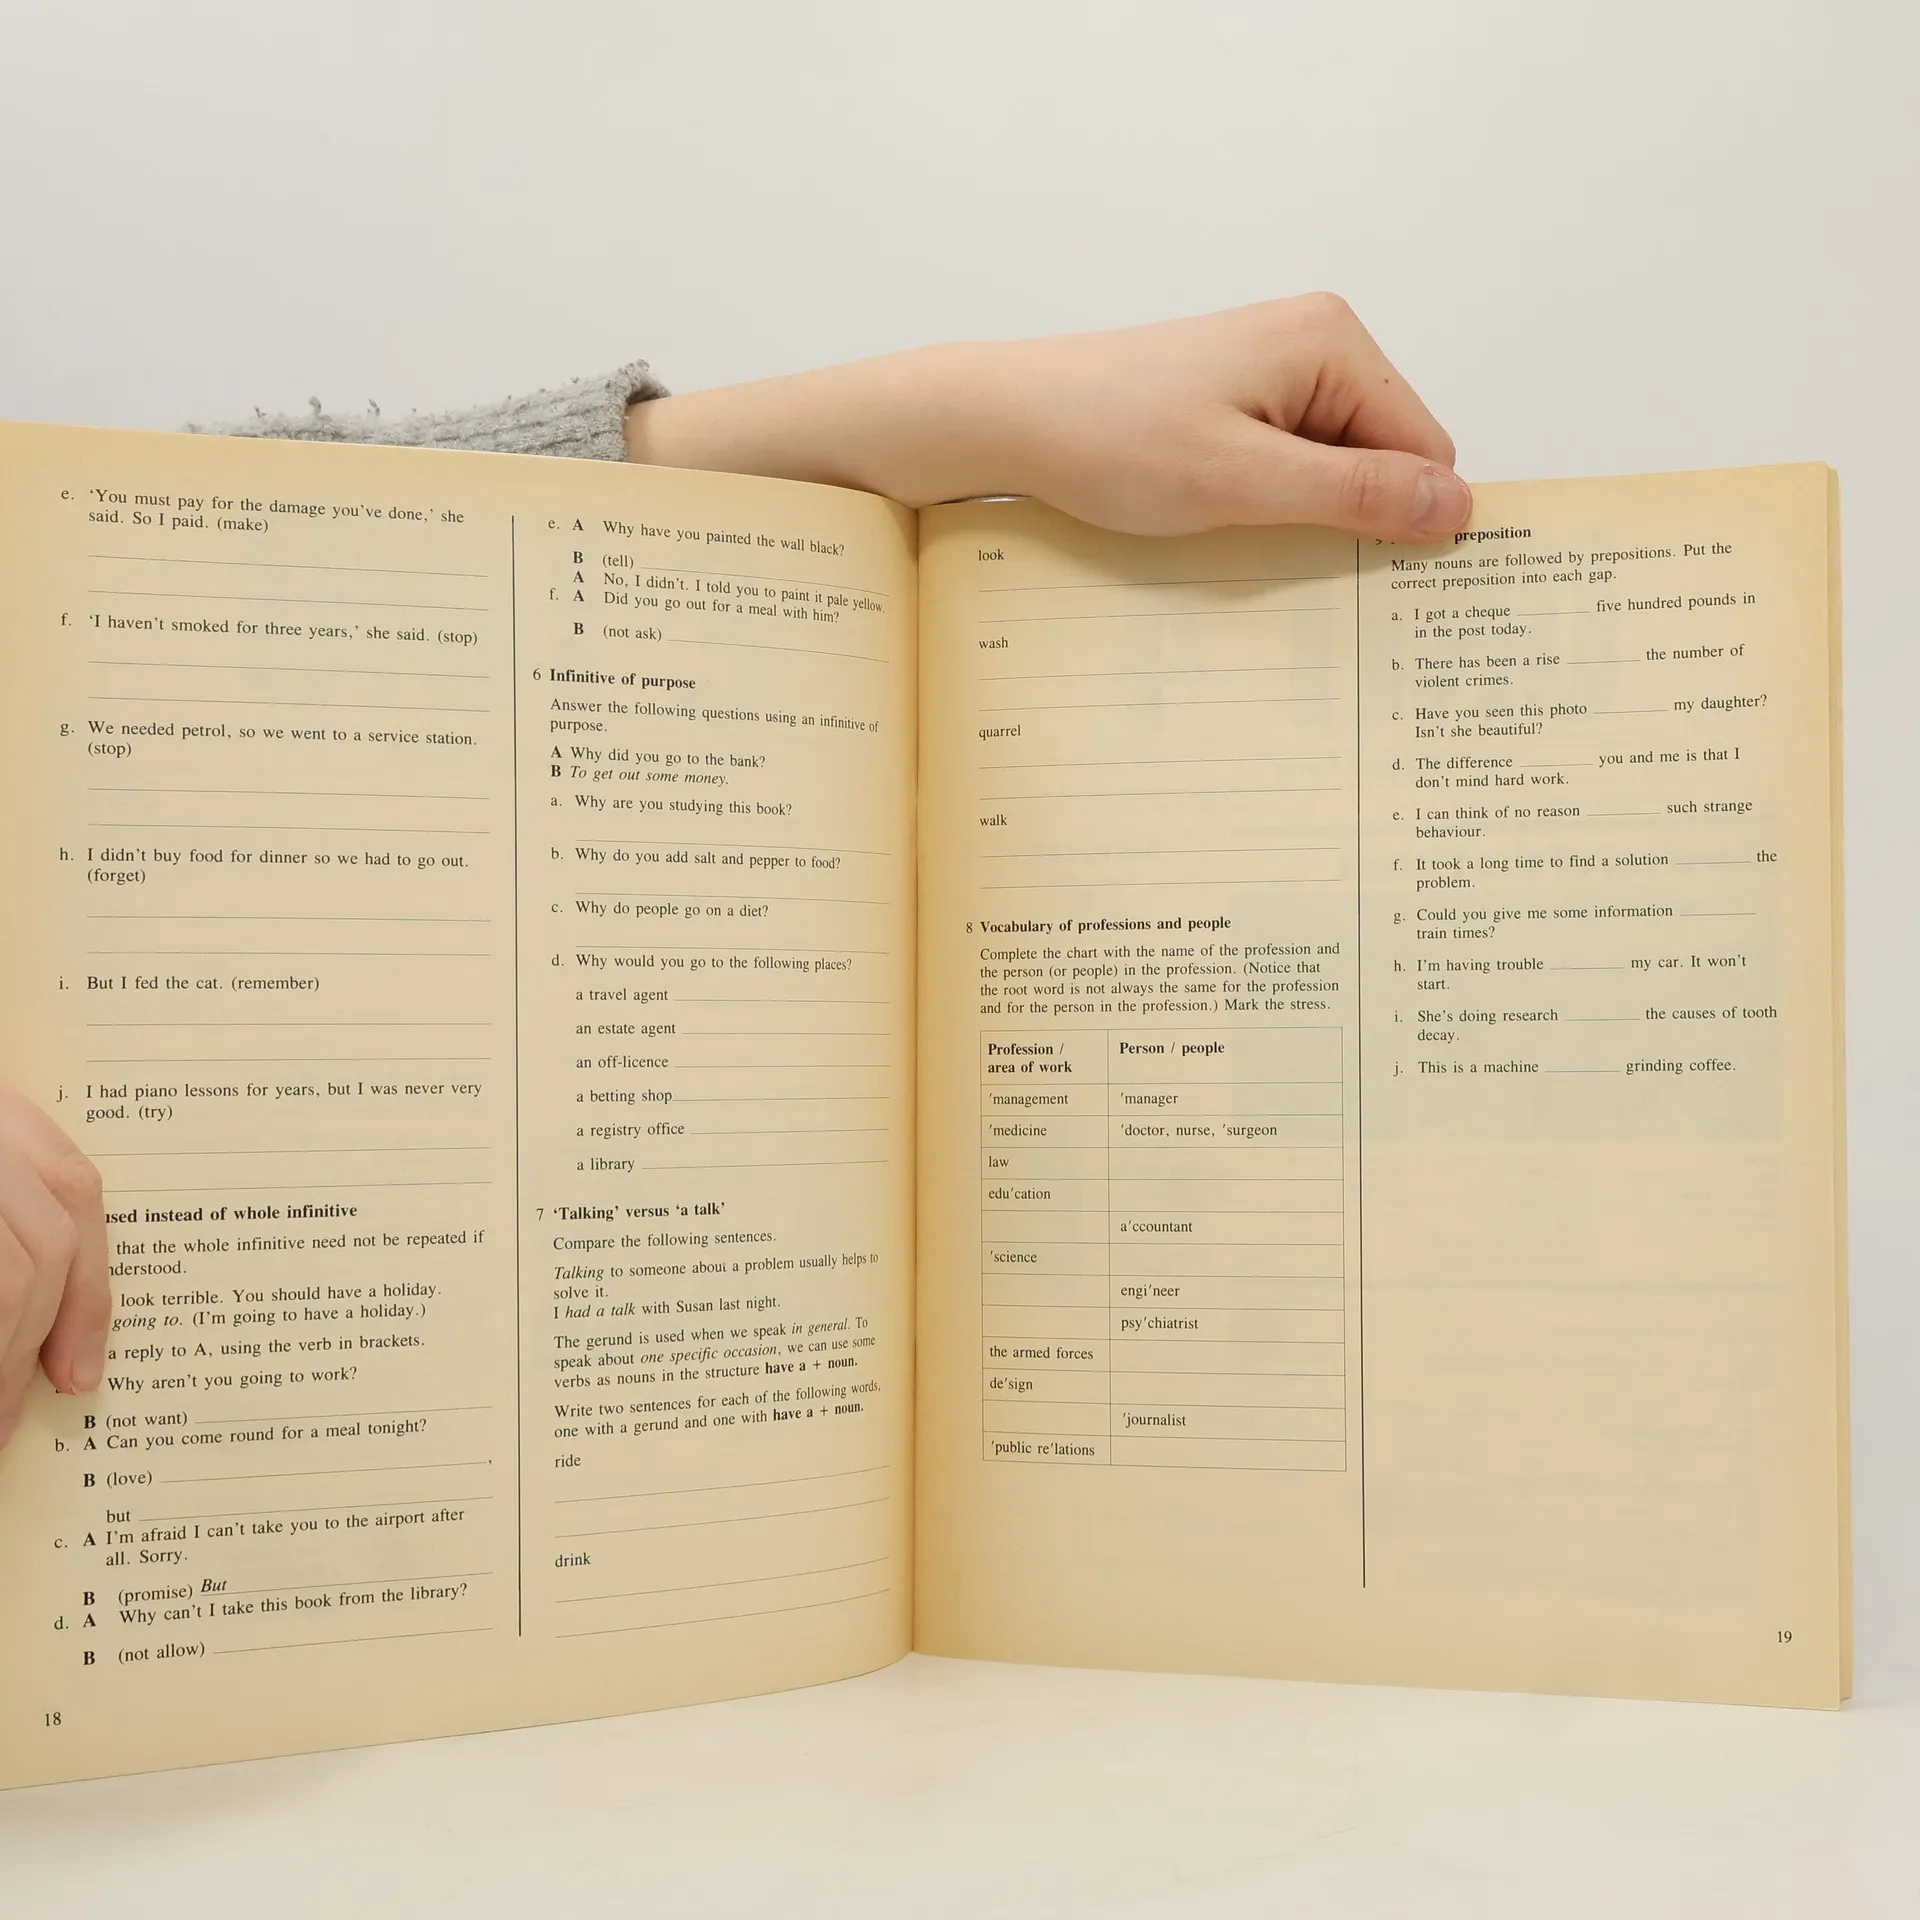 e. ‘You must pay for the damage you’ve done,’ she
said. So I paid. (make)
f. ‘I haven’t smoked for three years,’ she said. (stop)
g. We needed petrol, so we went to a service station.
(stop)
h. I didn’t buy food for dinner so we had to go out.
(forget)
i. But I fed the cat. (remember)
j. I had piano lessons for years, but I was never very
good. (try)
instead of whole infinitive
that the whole infinitive need not be repeated if
look terrible. You should have a holiday.
going to. (I’m going to have a holiday.)
a reply to A, using the verb in brackets.
Why aren’t you going to work?
B (not want)
b. A Can you come round for a meal tonight?
B (love) ,
but
c. A I’m afraid I can’t take you to the airport after
all. Sorry.
B (promise) But
d. A Why can’t I take this book from the library?
B (not allow)
18
e. A Why have you painted the wall black?
B (tell)
A No, I didn’t. I told you to paint it pale yellow.
f. A Did you go out for a meal with him?
B (not ask)
6 Infinitive of purpose
Answer the following questions using an infinitive of
purpose.
A Why did you go to the bank?
B To get out some money.
a. Why are you studying this book?
b. Why do you add salt and pepper to food?
c. Why do people go on a diet?
d. Why would you go to the following places?
a travel agent
an estate agent
an off-licence
a betting shop
a registry office
a library
7 ‘Talking’ versus ‘a talk’
Compare the following sentences.
Talking to someone about a problem usually helps to
solve it.
I had a talk with Susan last night.
The gerund is used when we speak in general. To
speak about one specific occasion, we can use some
verbs as nouns in the structure have a + noun.
Write two sentences for each of the following words,
one with a gerund and one with have a + noun.
ride
drink
look
wash
quarrel
walk
8 Vocabulary of professions and people
Complete the chart with the name of the profession and
the person (or people) in the profession. (Notice that
the root word is not always the same for the profession
and for the person in the profession.) Mark the stress.
Profession / Person / people
area of work
'management 'manager
'medicine 'doctor, nurse, 'surgeon
law
edu'cation
a'ccountant
'science
engi'neer
psy'chiatrist
the armed forces
de'sign
'journalist
'public re'lations
preposition
Many nouns are followed by prepositions. Put the
correct preposition into each gap.
a. I got a cheque ________ five hundred pounds in
in the post today.
b. There has been a rise ________ the number of
violent crimes.
c. Have you seen this photo ________ my daughter?
Isn’t she beautiful?
d. The difference ________ you and me is that I
don’t mind hard work.
e. I can think of no reason ________ such strange
behaviour.
f. It took a long time to find a solution ________ the
problem.
g. Could you give me some information ________
train times?
h. I’m having trouble ________ my car. It won’t
start.
i. She’s doing research ________ the causes of tooth
decay.
j. This is a machine ________ grinding coffee.
19